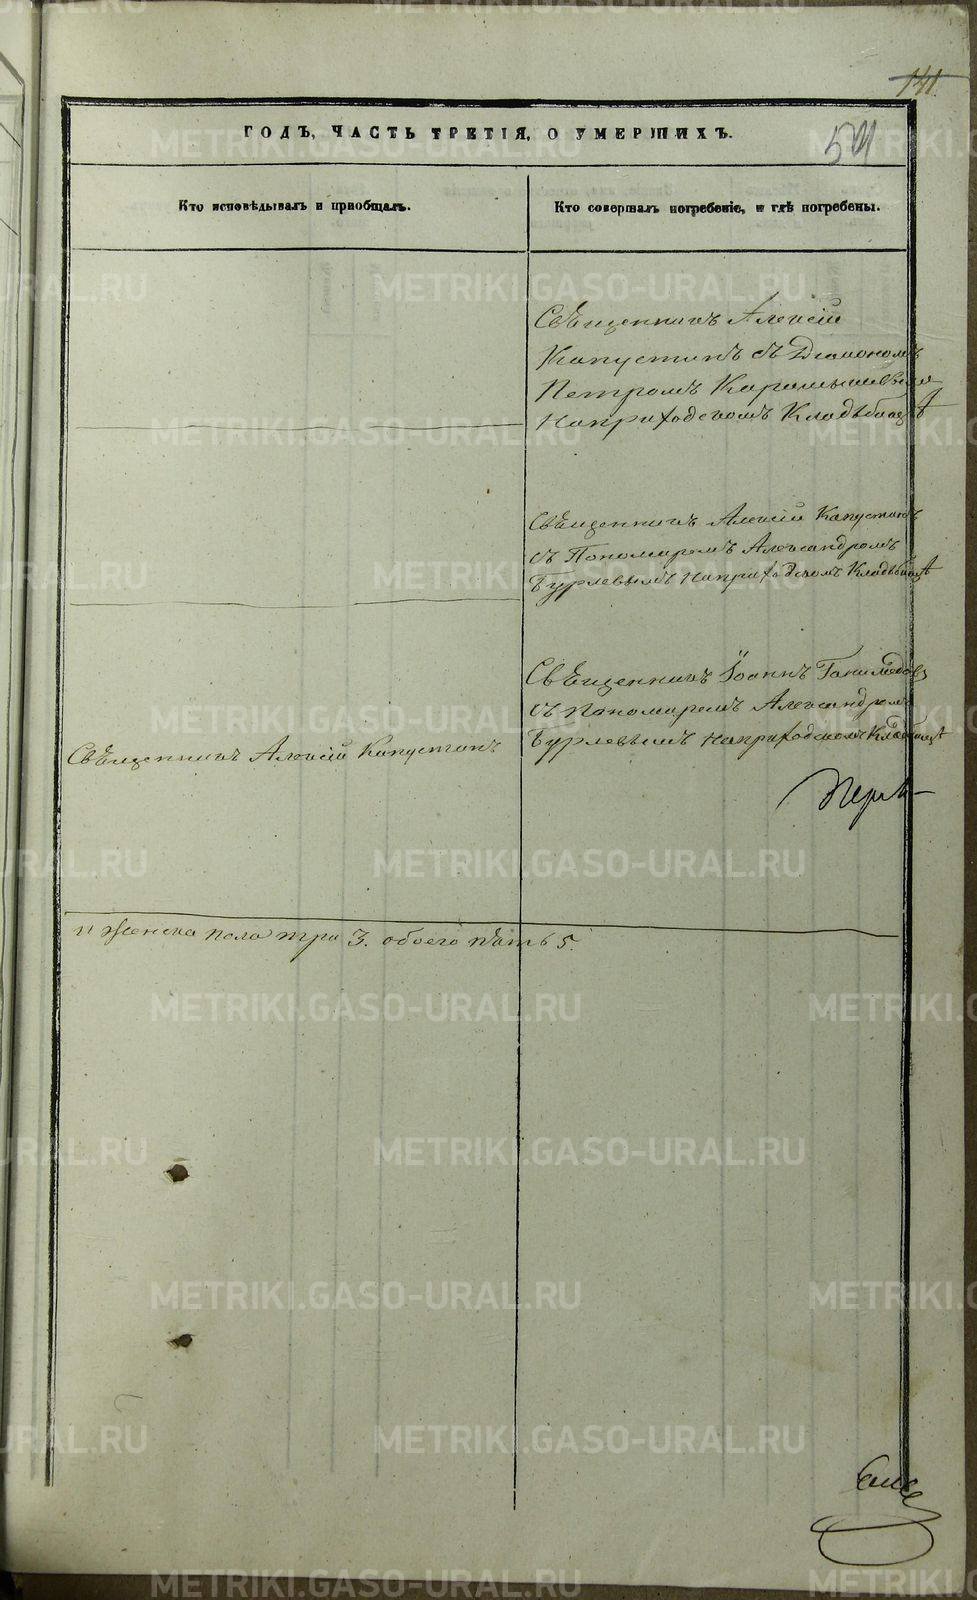 141.
ГОДЪ, ЧАСТЬ ТРЕТІЯ, О УМЕРШИХЪ.
Кто исповѣдывалъ и пріобщалъ.
Кто совершалъ погребеніе, и гдѣ погребены.
Священникъ Алексій
Капустинъ съ Діакономъ
Петромъ
Наприходскомъ Кладьбищѣ
Священникъ Алексій Капустинъ
съ Пономаремъ Александромъ
Бурлевымъ Наприходскомъ Кладьбищѣ
Священникъ Іоаннъ
съ Пономаремъ Александромъ
Бурлевымъ Наприходскомъ Кладьбищѣ
Священникъ Алексій Капустинъ
и женска пола три 3. обоего пять 5.
METRIKI.GASO-URAL.RU